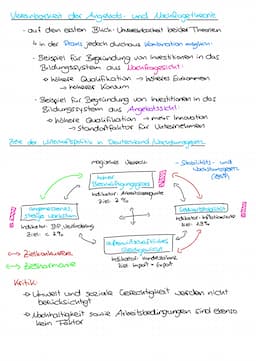 Vereinbarkeit der Angebots- und Nachfragetheorie
- auf den ersten Blick: Unvereinbarkeit beider Theorien
↳ in der Praxis jedoch durchaus Kombination möglich:
- Beispiel für Begründung von Investitionen in das
Bildungssystem aus Nachfragesicht:
→ höhere Qualifikation → höheres Einkommen
→ höherer Konsum
- Beispiel für Begründung von Investitionen in das
Bildungssystem aus Angebotssicht:
→ höhere Qualifikation → mehr Innovation
→ Standortfaktor für Unternehmen
Ziele der Wirtschaftspolitik in Deutschland
magisches Viereck
- Stabilitäts- und
Wachstumsgesetz
hoher
Beschäftigungsgrad
Indikator: Arbeitslosenquote
Ziel: 2%
angemessenes,
stetiges Wachstum
Indikator: BIP-Veränderung
Ziel: 2%
Geldwertstabilität
Indikator: Inflationsrate
außenwirtschaftliches
Gleichgewicht
Indikator: Handelsbilanz
Ziel: Import = Export
↔ Zielkonkurrenz
↔ Zielharmonie
Kritik:
→ Umwelt und soziale Gerechtigkeit werden nicht
berücksichtigt
→ Nachhaltigkeit sowie Arbeitsbedingungen sind ebenso
kein Faktor